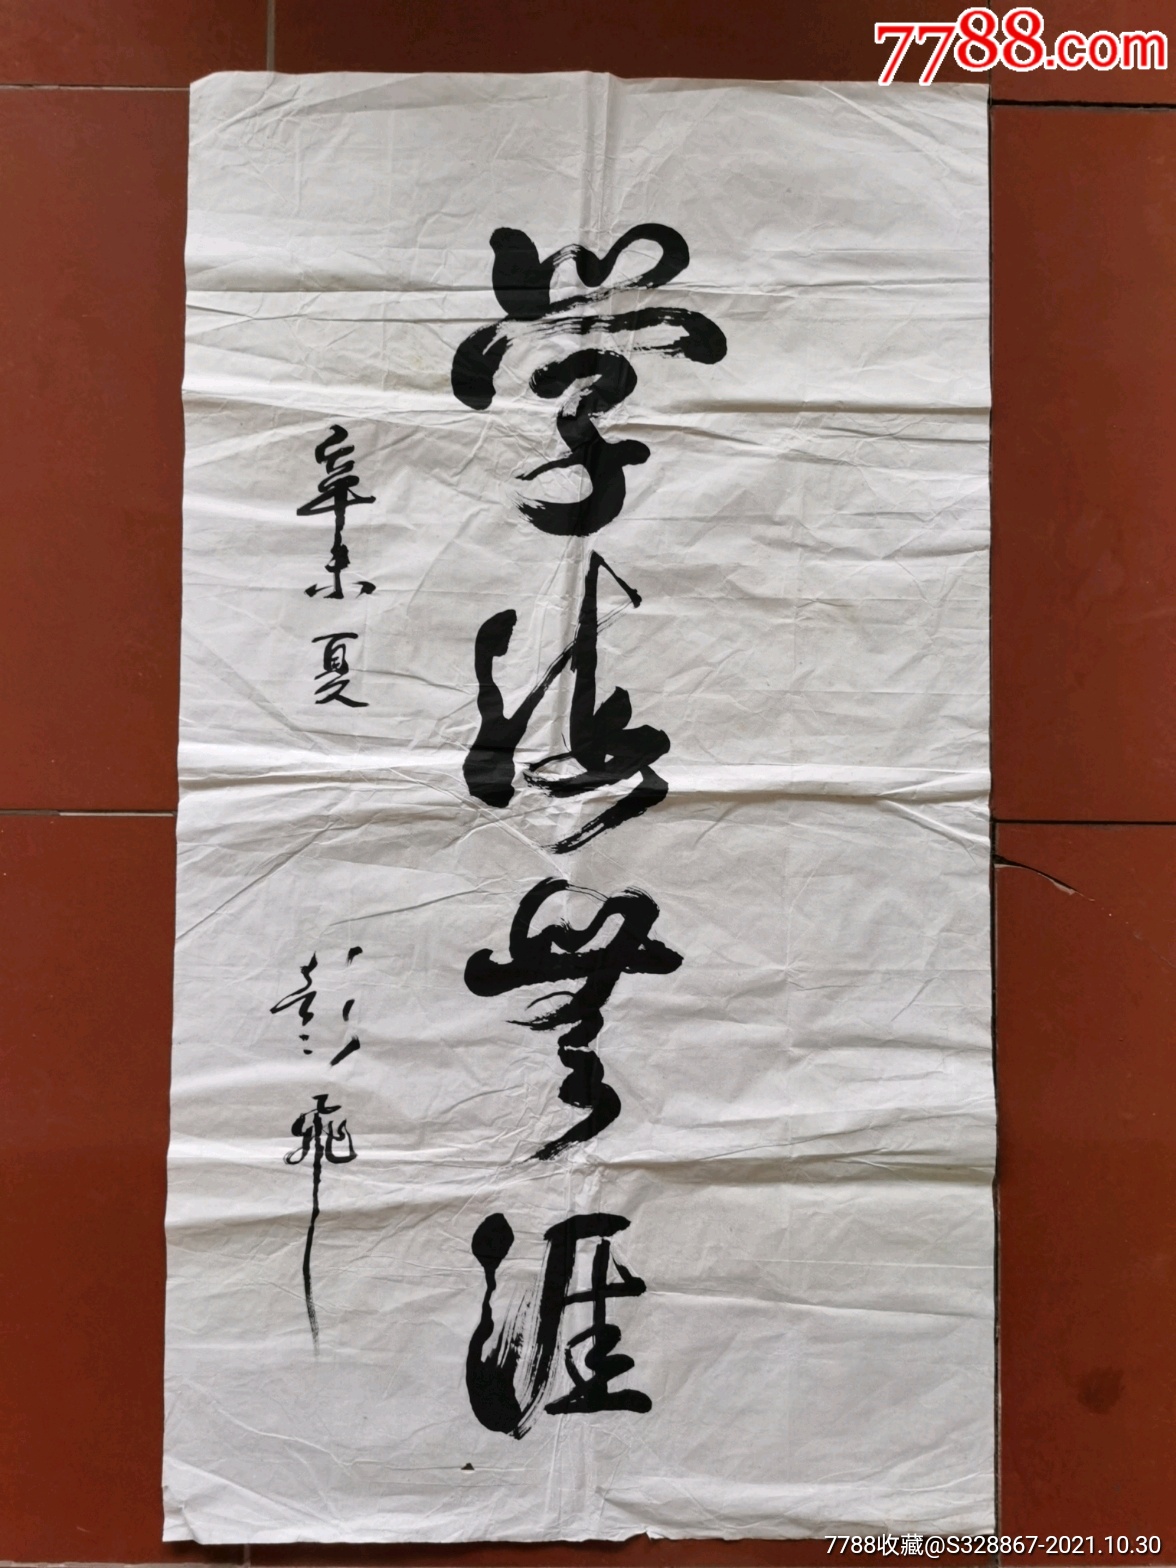 7788.com
学海无涯
辛未夏
彭飞
7788收藏@S328867-2021.10.30